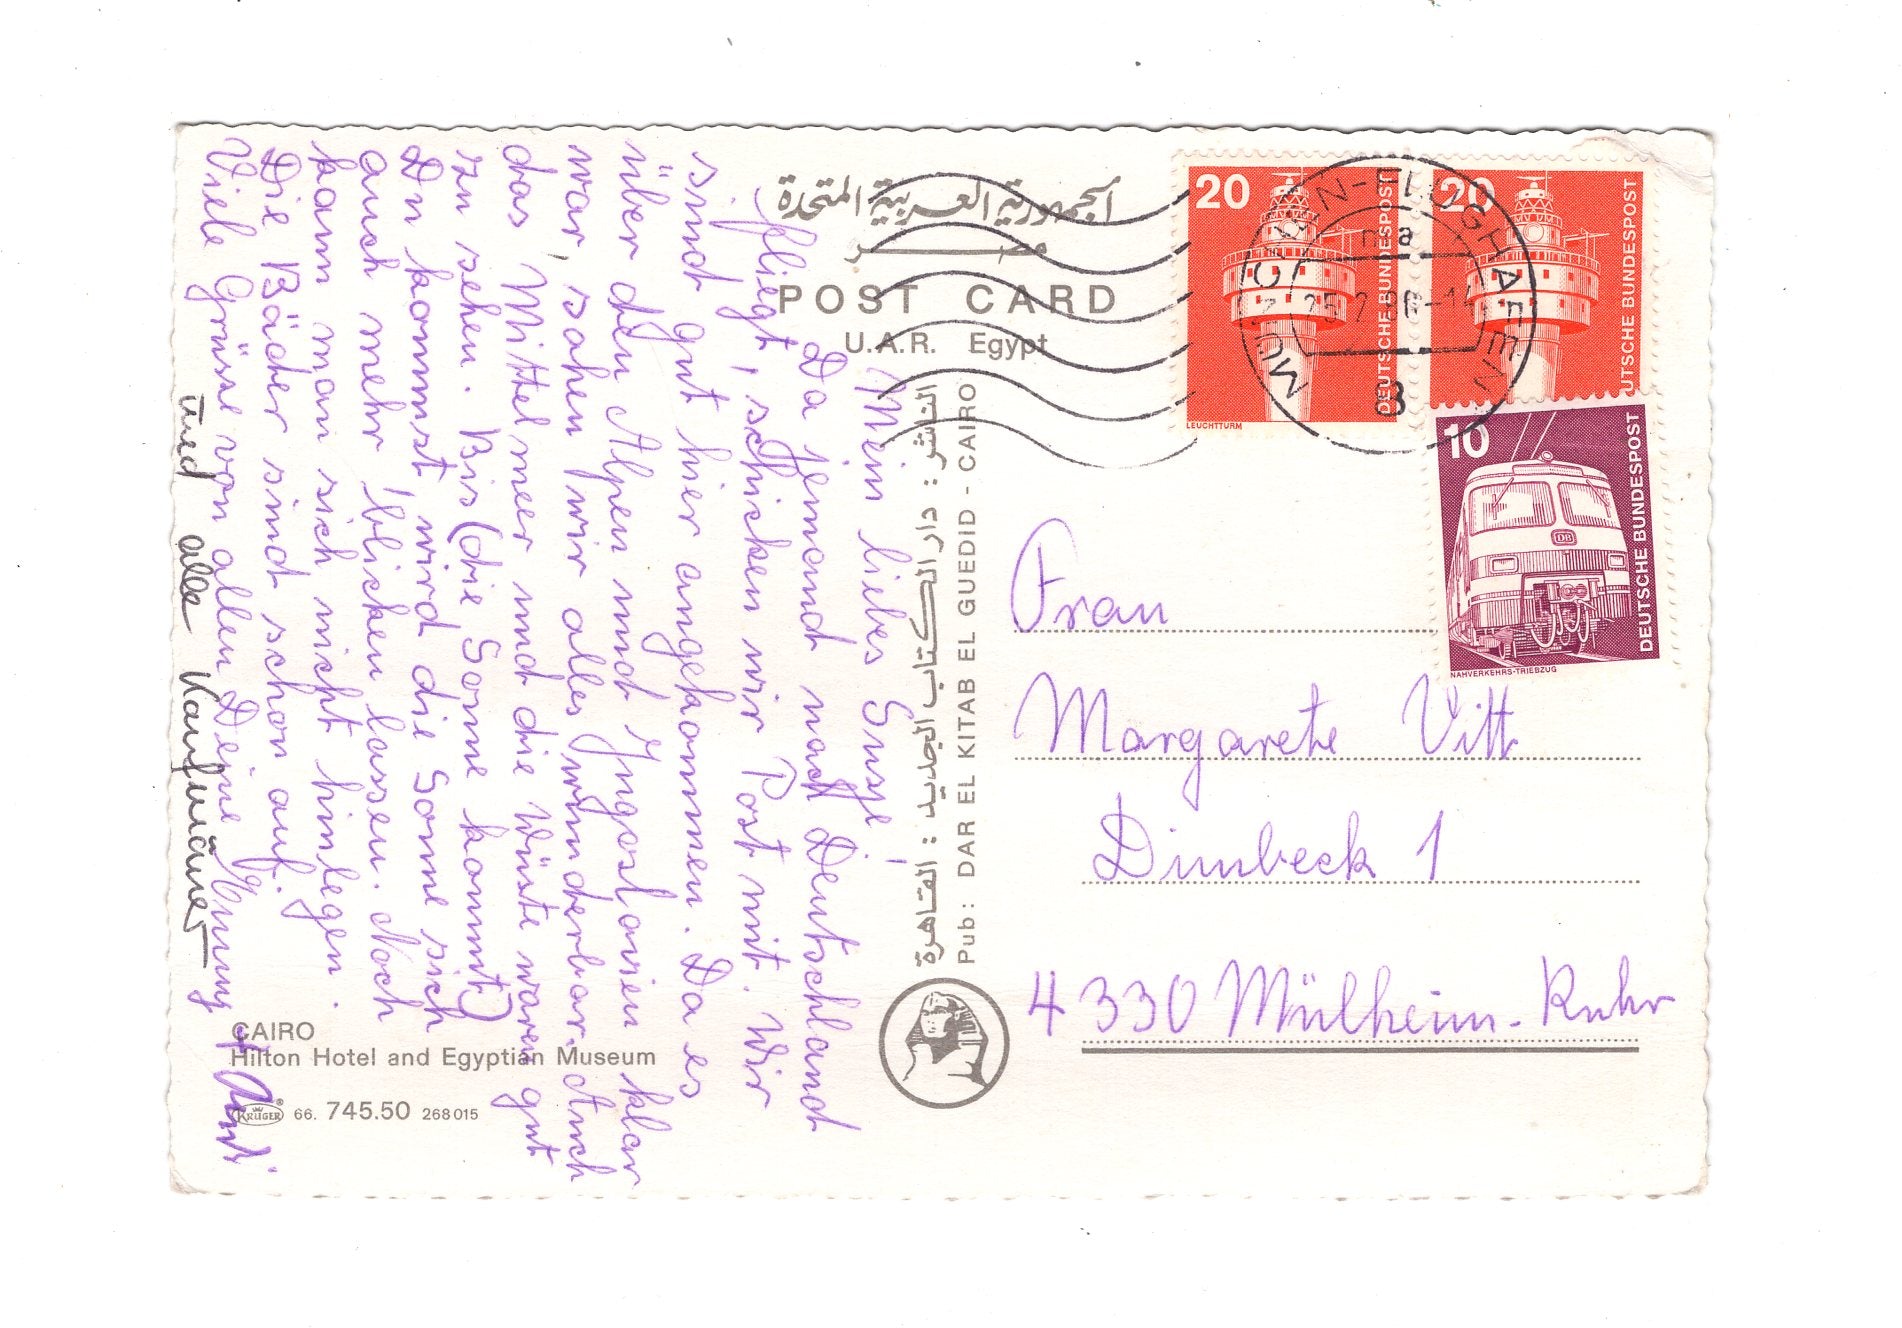 الجمهورية العربية المتحدة
مصر
POST CARD
U.A.R. Egypt
Mein liebes Susje!
Da jemand nach Deutschland
fliegt, schicken wir Post mit. Wir
sind gut hier angekommen. Da es
über den Alpen und Jugoslavien klar
war, sahen wir alles wunderbar. Auch
das Mittelmeer und die Wüste waren gut
zu sehen. Bis (die Sonne kommt)
Du kommst wird die Sonne sich
auch mehr blicken lassen. Noch
kann man sich nicht hinlegen.
Die Bäder sind schon auf.
Viele Grüsse von allen Deine
und alle Kaufmänner
الناشر : دار الكتاب الجديد : القاهرة
Pub: DAR EL KITAB EL GUEDID - CAIRO
CAIRO
Hilton Hotel and Egyptian Museum
KRÜGER ® 66. 745.50 268 015
20
DEUTSCHE BUNDESPOST
LEUCHTTURM
20
UTSCHE BUNDESPOST
MÜNCHEN-FLUGHAFEN
8
10
DEUTSCHE BUNDESPOST
DB
NAHVERKEHRS-TRIEBZUG
Frau
Margarete Vitt
Dimbeck 1
4330 Mülheim-Ruhr